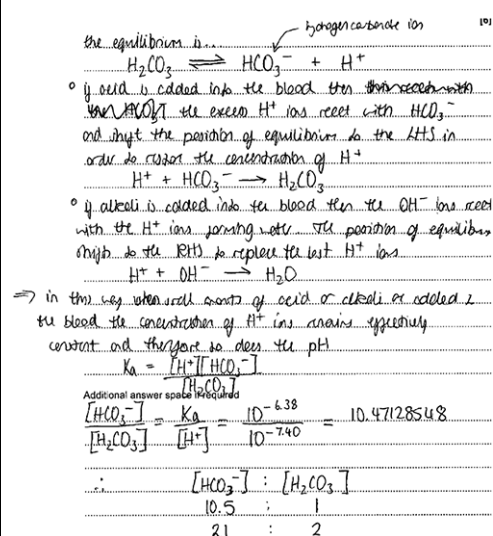 hydrogencarbonate ion
the equilibrium is...
H₂CO₃ ⇌ HCO₃⁻ + H⁺
° if acid is added into the blood then
the excess H⁺ ions react with HCO₃⁻
and shift the position of equilibrium to the LHS in
order to restore the concentration of H⁺
H⁺ + HCO₃⁻ → H₂CO₃
° if alkali is added into the blood then the OH⁻ ions react
with the H⁺ ions forming water. The position of equilibrium
shifts to the RHS to replace the lost H⁺ ions
H⁺ + OH⁻ → H₂O
⇒ in this way when small amounts of acid or alkali are added 2
the blood the concentration of H⁺ ions remains effectively
constant and therefore so does the pH
Ka = [H⁺][HCO₃⁻] / [H₂CO₃]
Additional answer space if required
[HCO₃⁻] / [H₂CO₃] = Ka / [H⁺] = 10^-6.38 / 10^-7.40 = 10.47128548
∴ [HCO₃⁻] : [H₂CO₃]
10.5 : 1
21 : 2